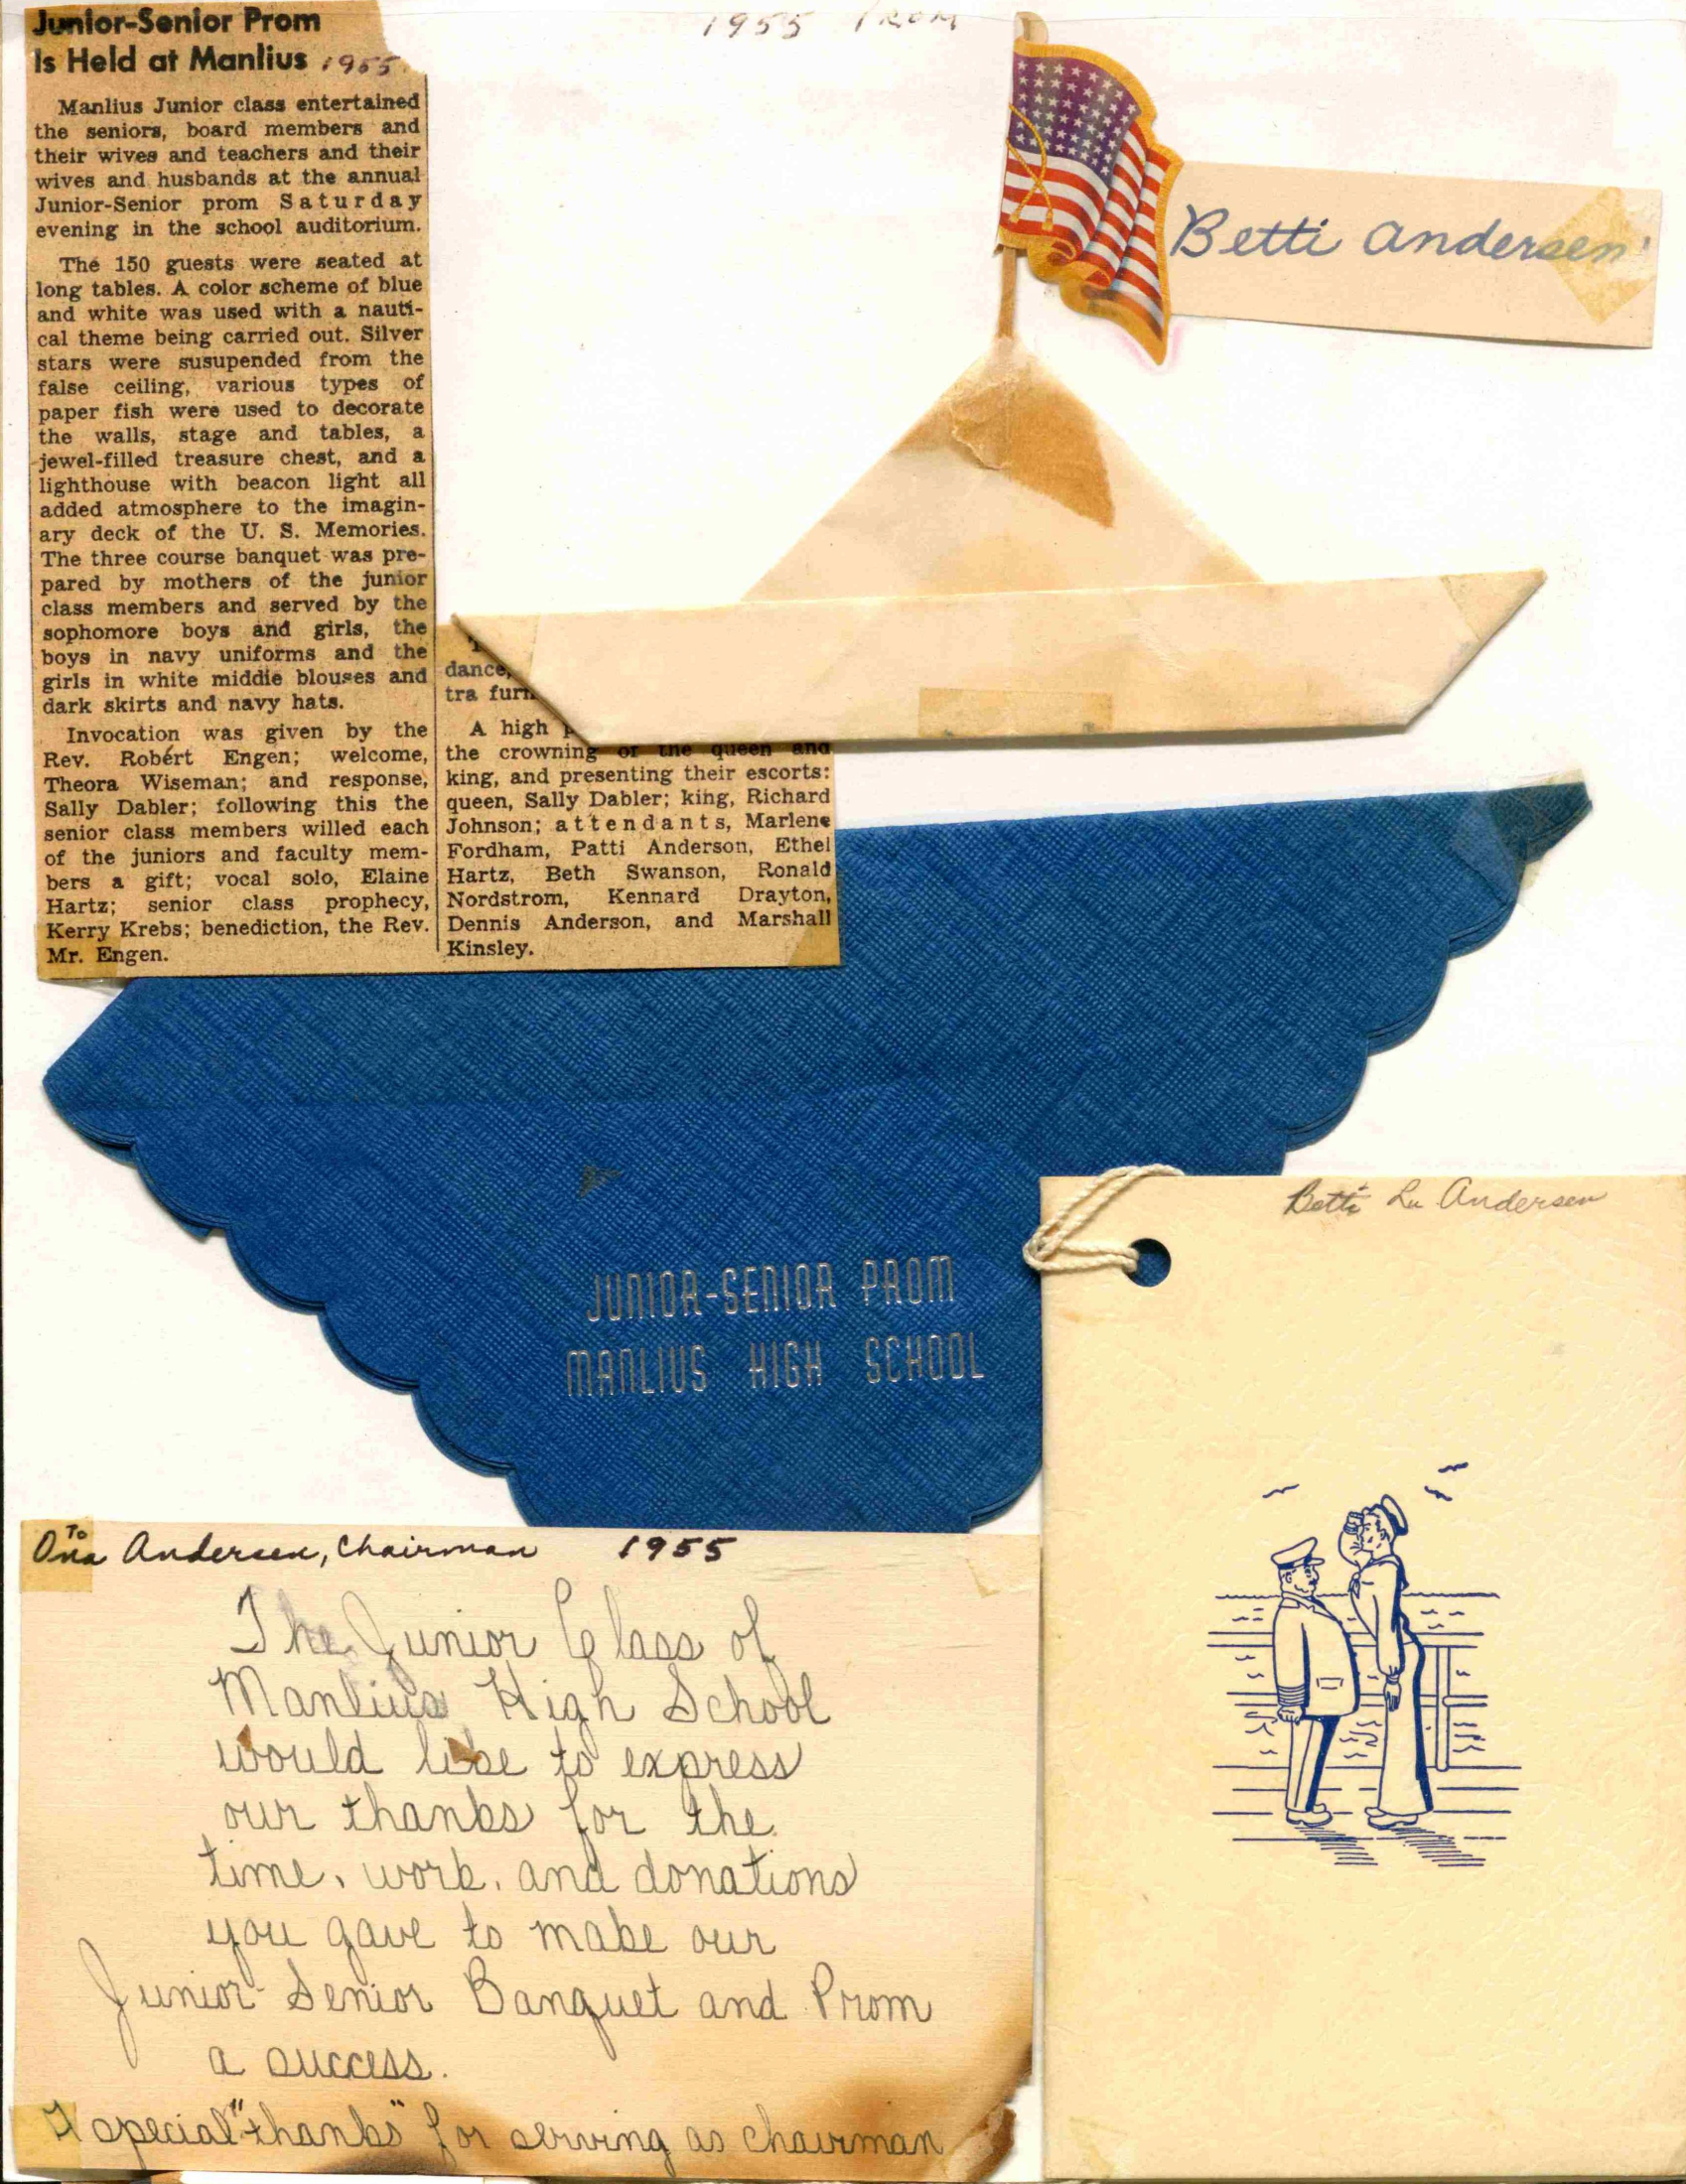 1955 PROM
Junior-Senior Prom
Is Held at Manlius 1955
Manlius Junior class entertained
the seniors, board members and
their wives and teachers and their
wives and husbands at the annual
Junior-Senior prom Saturday
evening in the school auditorium.
The 150 guests were seated at
long tables. A color scheme of blue
and white was used with a nauti-
cal theme being carried out. Silver
stars were susupended from the
false ceiling, various types of
paper fish were used to decorate
the walls, stage and tables, a
jewel-filled treasure chest, and a
lighthouse with beacon light all
added atmosphere to the imagin-
ary deck of the U. S. Memories.
The three course banquet was pre-
pared by mothers of the junior
class members and served by the
sophomore boys and girls, the
boys in navy uniforms and the
girls in white middie blouses and
dark skirts and navy hats.
Invocation was given by the
Rev. Robert Engen; welcome,
Theora Wiseman; and response,
Sally Dabler; following this the
senior class members willed each
of the juniors and faculty mem-
bers a gift; vocal solo, Elaine
Hartz; senior class prophecy,
Kerry Krebs; benediction, the Rev.
Mr. Engen.
dance,
tra furn
A high
the crowning of the queen and
king, and presenting their escorts:
queen, Sally Dabler; king, Richard
Johnson; attendants, Marlene
Fordham, Patti Anderson, Ethel
Hartz, Beth Swanson, Ronald
Nordstrom, Kennard Drayton,
Dennis Anderson, and Marshall
Kinsley.
Betti Andersen
JUNIOR-SENIOR PROM
MANLIUS HIGH SCHOOL
Betti Lu Andersen
To
Ona Andersen, Chairman 1955
The Junior Class of
Manlius High School
would like to express
our thanks for the
time, work, and donations
you gave to make our
Junior-Senior Banquet and Prom
a success.
A special "thanks" for serving as chairman